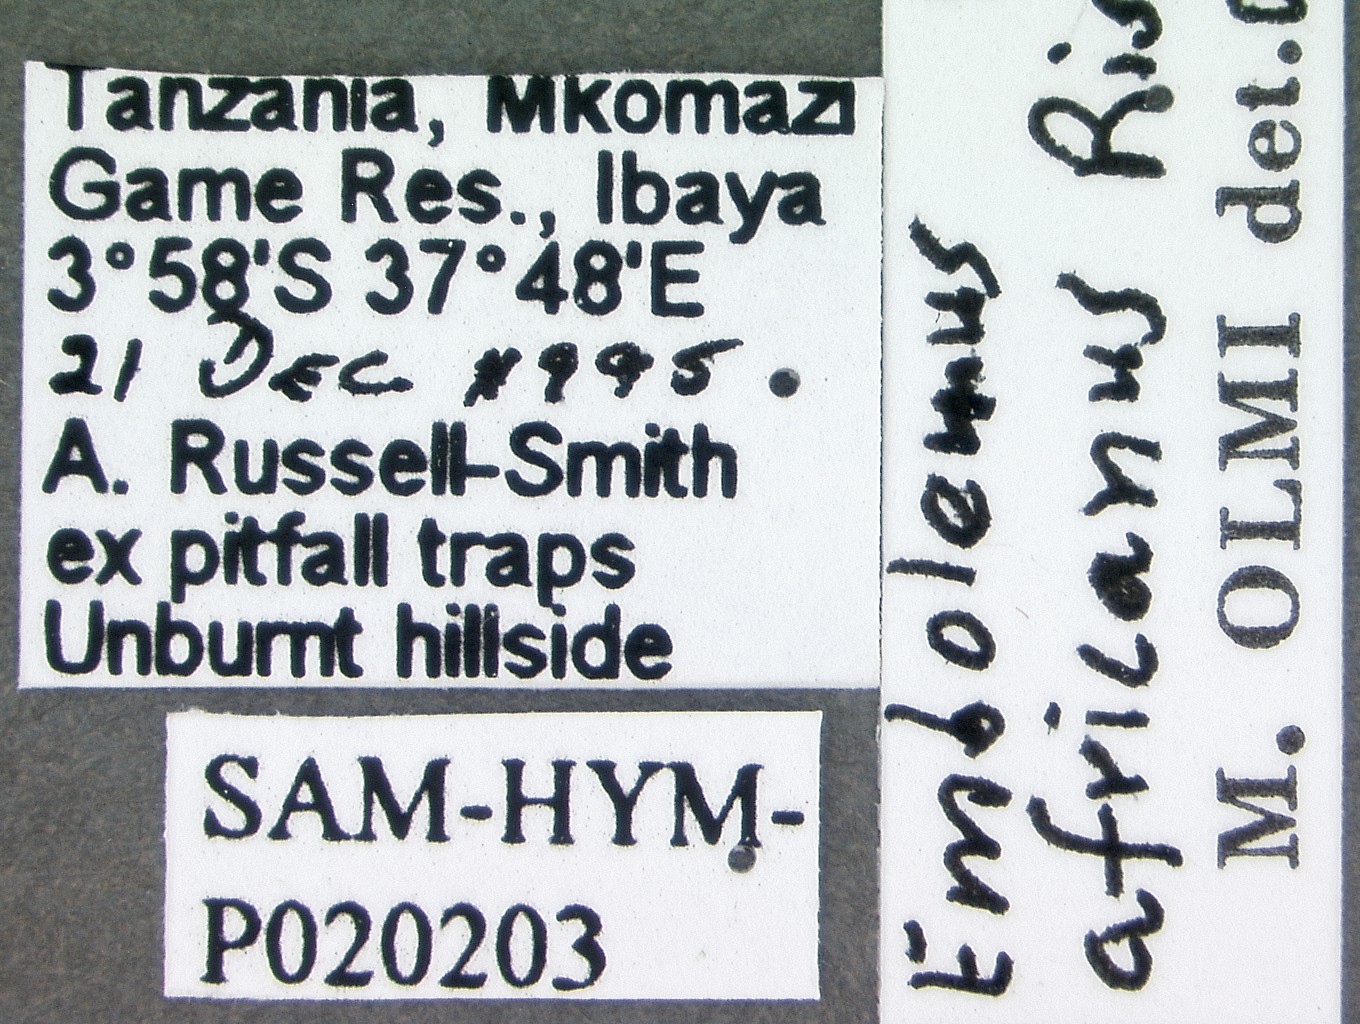 Tanzania, Mkomazi
Game Res., Ibaya
3°58'S 37°48'E
21 DEC 1995
A. Russell-Smith
ex pitfall traps
Unburnt hillside
SAM-HYM-
P020203
Embolemus
africanus Ris
M. OLMI det.